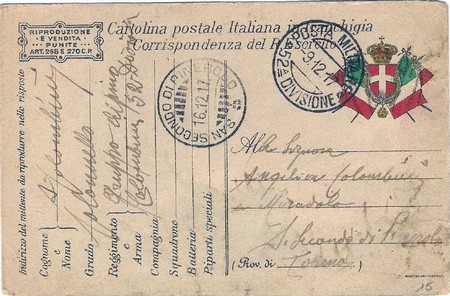 RIPRODUZIONE
E VENDITA
PUNITE
ART. 268 E 270 C.P.
Cartolina postale Italiana in franchigia
Corrispondenza del R. Esercito
POSTA MILITARE
9.12.17
52a DIVISIONE
SAN SECONDO DI PINEROLO
16.12.17
Indirizzo del mittente da riprodurre nelle risposte
Cognome e Nome
Grado Colonnello
Reggimento e Arma Gruppo Alpini
Compagnia
Squadrone
Batteria
Riparti speciali
Alla Signora
Angelica Colombini
Miradolo
S. Secondo di
(Prov. di) Torino
15